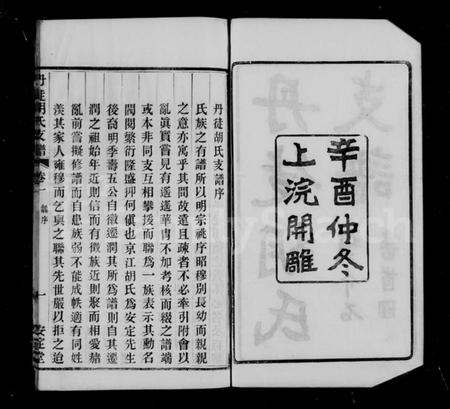 辛酉仲冬
上浣開雕
丹徒胡氏支譜序
氏族之有譜所以明宗祧序昭穆別長幼而親親
之意亦寓乎其間故遠且疎者不必牽引附會以
亂眞賞嘗見有遙遙華冑不加考核而綴之譜端
或本非同支互相攀援而聯為一族表示其動名
閥閱繁衍隆盛抑何儍也京江胡氏為安定先生
後裔明季壽五公自徽遷潤其所為譜則自其遷
潤之祖始年近則信而有徵族近則聚而相愛嘉
亂前嘗擬修譜而自患族弱不能成帙適有同姓
羨其家人雍穆而乞與之聯其先世嚴以拒之迨
丹徒胡氏支譜
卷一
序
一
安定堂